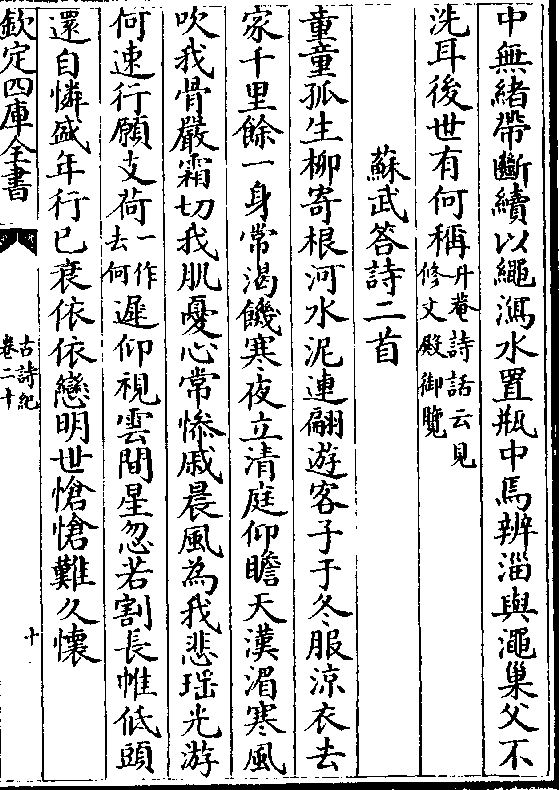 中無緒帶斷續以繩漏水置瓶中焉辨淄與澠巢父不
洗耳後世有何稱升菴詩話云見修文殿御覽
蘇武答詩二首
童童孤生柳寄根河水泥連翩遊客子于冬服涼衣去
家千里餘一身常渴饑寒夜立清庭仰瞻天漢湄寒風
吹我骨嚴霜切我肌憂心常慘戚晨風為我悲瑤光游
何速行願支荷一作去何遲仰視雲間星忽若割長帷低頭
還自憐盛年行已衰依依戀明世愴愴難久懷
欽定四庫全書
古詩紀
卷二十
十